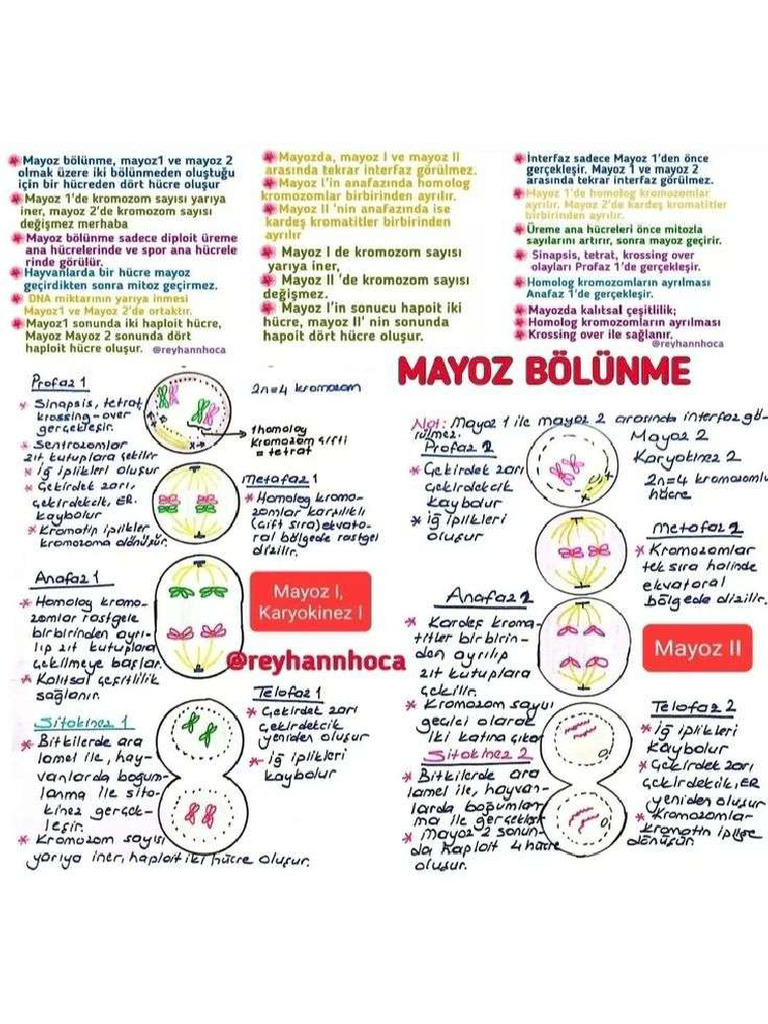 Mayoz bölünme, mayoz1 ve mayoz 2
olmak üzere iki bölünmeden oluştuğu
için bir hücreden dört hücre oluşur
Mayoz 1'de kromozom sayısı yarıya
iner, mayoz 2'de kromozom sayısı
değişmez merhaba
Mayoz bölünme sadece diploit üreme
ana hücrelerinde ve spor ana hücrele
rinde görülür.
Hayvanlarda bir hücre mayoz
geçirdikten sonra mitoz geçirmez.
DNA miktarının yarıya inmesi
Mayoz1 ve Mayoz 2'de ortaktır.
Mayoz1 sonunda iki haploit hücre,
Mayoz Mayoz 2 sonunda dört
haploit hücre oluşur. @reyhannhoca
Mayozda, mayoz I ve mayoz II
arasında tekrar interfaz görülmez.
Mayoz I'in anafazında homolog
kromozomlar birbirinden ayrılır.
Mayoz II 'nin anafazında ise
kardeş kromatitler birbirinden
ayrılır
Mayoz I de kromozom sayısı
yarıya iner,
Mayoz II 'de kromozom sayısı
değişmez.
Mayoz I'in sonucu hapoit iki
hücre, mayoz II' nin sonunda
hapoit dört hücre oluşur.
İnterfaz sadece Mayoz 1'den önce
gerçekleşir. Mayoz 1 ve mayoz 2
arasında tekrar interfaz görülmez.
Mayoz 1'de homolog kromozomlar
ayrılır. Mayoz 2'de kardeş kromatitler
birbirinden ayrılır.
Üreme ana hücreleri önce mitozla
sayılarını artırır, sonra mayoz geçirir.
Sinapsis, tetrat, krossing over
olayları Profaz 1'de gerçekleşir.
Homolog kromozomların ayrılması
Anafaz 1'de gerçekleşir.
Mayozda kalıtsal çeşitlilik;
Homolog kromozomların ayrılması
Krossing over ile sağlanır.
@reyhannhoca
MAYOZ BÖLÜNME
Profaz 1
Sinapsis, tetrat,
krossing-over
gerçekleşir.
Sentrozomlar
zıt kutuplara çekilir
İğ iplikleri oluşur
Çekirdek zarı,
çekirdekcik, ER.
kaybolur
Kromatin iplikler
kromozoma dönüşür.
2n=4 kromozom
1 homolog
kromozom çifti
= tetrat
Metafaz 1
Homolog kromo-
zomlar karşılıklı
(çift sıra) ekvato-
ral bölgede rastgel
dizilir.
Anafaz 1
Homolog kromo-
zomlar rastgele
birbirinden ayrı-
lıp zıt kutuplara
çekilmeye başlar.
Kalıtsal çeşitlilik
sağlanır.
Mayoz I,
Karyokinez I
@reyhannhoca
Telofaz 1
Çekirdek zarı
çekirdekcik
yeniden oluşur
İğ iplikleri
kaybolur
Sitokinez 1
Bitkilerde ara
lamel ile, hay-
vanlarda boğum-
lanma ile sito-
kinez gerçek-
leşir.
Kromozom sayısı
yarıya iner, haploit iki hücre oluşur.
Not: Mayoz 1 ile mayoz 2 arasında interfaz gö-
rülmez.
Profaz 2
Çekirdek zarı
çekirdekcik
kaybolur
iğ iplikleri
oluşur
Mayoz 2
Karyokinez 2
2n=4 kromozomlu
hücre
Metafaz 2
Kromozomlar
tek sıra halinde
ekvatoral
bölgede dizilir.
Anafaz 2
Kardeş kroma-
titler birbirin-
den ayrılıp
zıt kutuplara
çekilir.
Kromozom sayısı
geçici olarak
iki katına çıkar
Mayoz II
Telofaz 2
İğ iplikleri
kaybolur
Çekirdek zarı
çekirdekcik, ER
yeniden oluşur
Kromozomlar
kromatin ipliğe
dönüşür
Sitokinez 2
Bitkilerde ara
lamel ile, hayvan-
larda boğumlan-
ma ile gerçekleşir
Mayoz 2 sonun-
da haploit 4 hücre
oluşur.